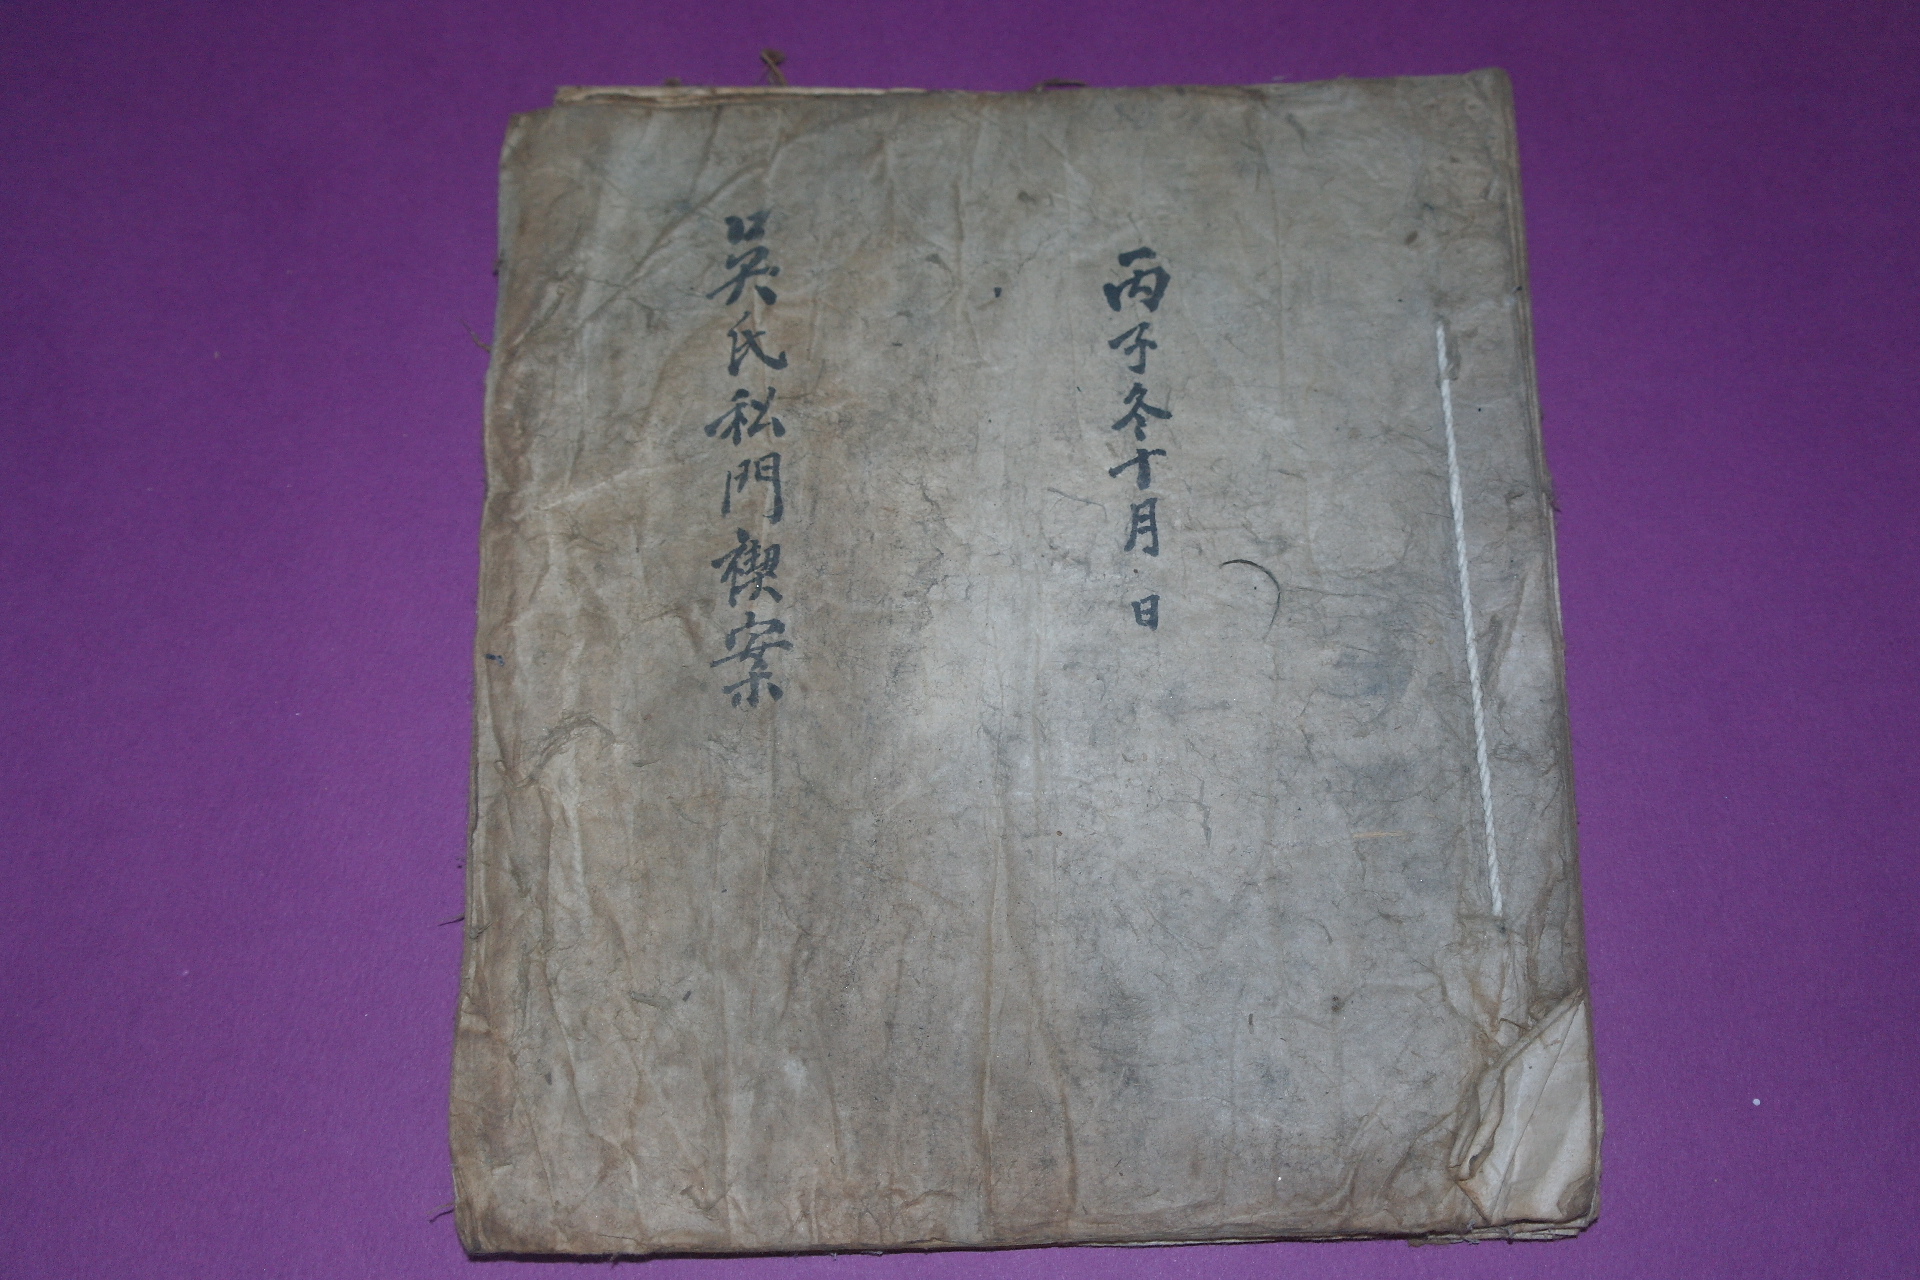 丙子冬十月 日
吳氏私門禊案